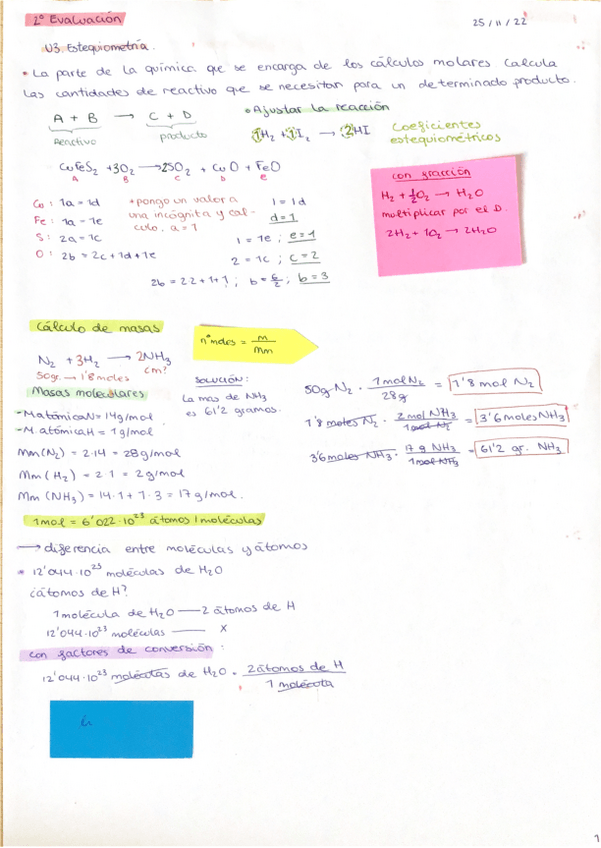 2ª Evaluación
25/11/22
U3. Estequiometría.
• La parte de la química que se encarga de los cálculos molares calcula
las cantidades de reactivo que se necesitan para un determinado producto.
• Ajustar la reacción
A + B → C + D
Reactivo producto
1H₂ + 1I₂ → 2HI
Coeficientes
estequiométricos
CuFeS₂ + 3O₂ → 2SO₂ + CuO + FeO
A B C D e
Cu: 1a = 1d
Fe: 1a = 1e
S: 2a = 1c
O: 2b = 2c + 1d + 1e
* pongo un valor a
una incógnita y cal-
culo, a = 1
1 = 1d
d = 1
1 = 1e ; e = 1
2 = 1c ; c = 2
2b = 2·2 + 1 + 1 ; b = 6/2 ; b = 3
con fracción
H₂ + ½O₂ → H₂O
multiplicar por el D.
2H₂ + 1O₂ → 2H₂O
Cálculo de masas
nº moles = m/Mm
N₂ + 3H₂ → 2NH₃
50gr. → 1'8 moles ¿m?
Masas moleculares
- M.atómica N = 14g/mol
- M.atómica H = 1g/mol
Mm(N₂) = 2·14 = 28g/mol
Mm(H₂) = 2·1 = 2g/mol
Mm(NH₃) = 14·1 + 1·3 = 17g/mol.
SOLUCIÓN:
La mas de NH₃
es 61'2 gramos.
50g N₂ · 1mol N₂/28g = 1'8 mol N₂
1'8 moles N₂ · 2mol NH₃/1mol N₂ = 3'6 moles NH₃
3'6 moles NH₃ · 17g NH₃/1mol NH₃ = 61'2 gr. NH₃
1mol = 6'022·10²³ átomos/moléculas
→ diferencia entre moléculas y átomos
* 12'044·10²³ moléculas de H₂O
¿átomos de H?
1 molécula de H₂O — 2 átomos de H
12'044·10²³ moléculas — x
con factores de conversión:
12'044·10²³ moléculas de H₂O · 2 átomos de H/1 molécula
1